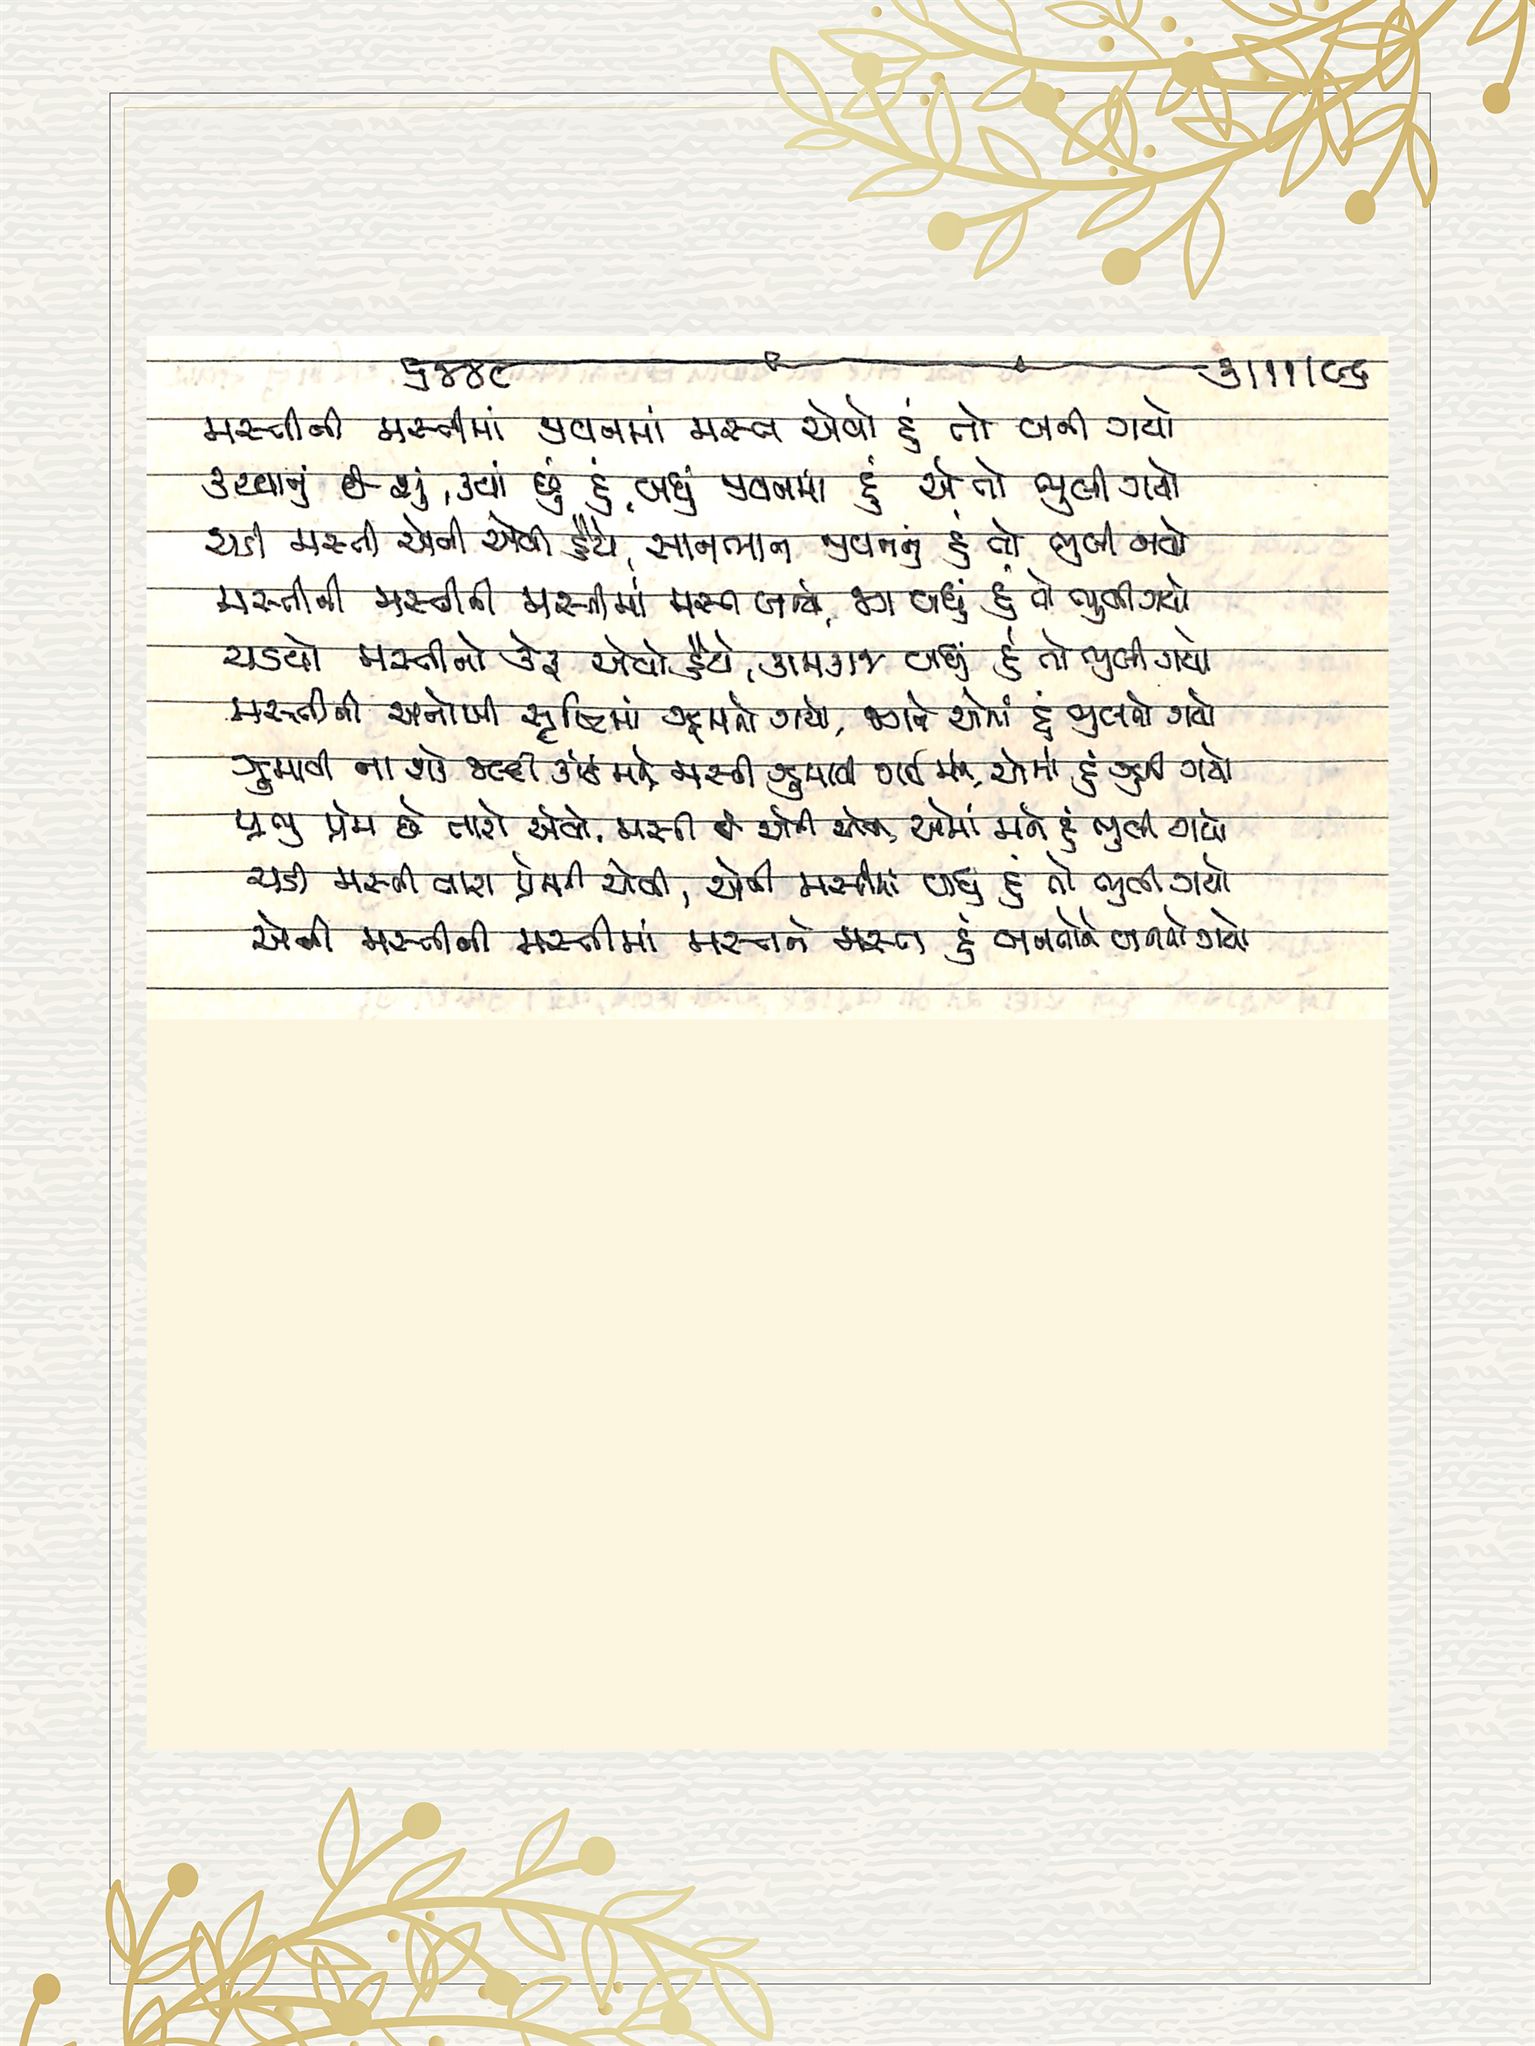 ૬૪૪૯ ૩।૧૧।૯૬
મસ્તીની મસ્તીમાં જીવનમાં મસ્ત એવો હું તો બની ગયો
કરવાનું છે શું, ક્યાં છું હું, બધું જીવનમાં હું એ તો ભુલી ગયો
ચડી મસ્તી એની એવી હૈયે, સાનભાન જીવનનું હું તો ભુલી ગયો
મસ્તીની મસ્તીની મસ્તીમાં મસ્ત બન્યો, જગ બધું હું તો ભુલી ગયો
ચડયો મસ્તીનો કેફ એવો હૈયે, કામકાજ બધું હું તો ભુલી ગયો
મસ્તીની અનોખી સૃષ્ટિમાં રમતો ગયો, જગને એમાં હું ભુલતો ગયો
ઝુમાવી ના શકે જલ્દી કોઈ મને, મસ્તી ઝુમાવી ગઈ મને, એમાં હું ઝુમી ગયો
પ્રભુ પ્રેમ છે તારો એવો, મસ્તી છે એની એવી, એમાં મને હું ભુલી ગયો
ચડી મસ્તી તારા પ્રેમની એવી, એવી મસ્તીમાં બધું હું તો ભુલી ગયો
એની મસ્તીની મસ્તીમાં મસ્તને મસ્ત હું બનતોને બનતો ગયો